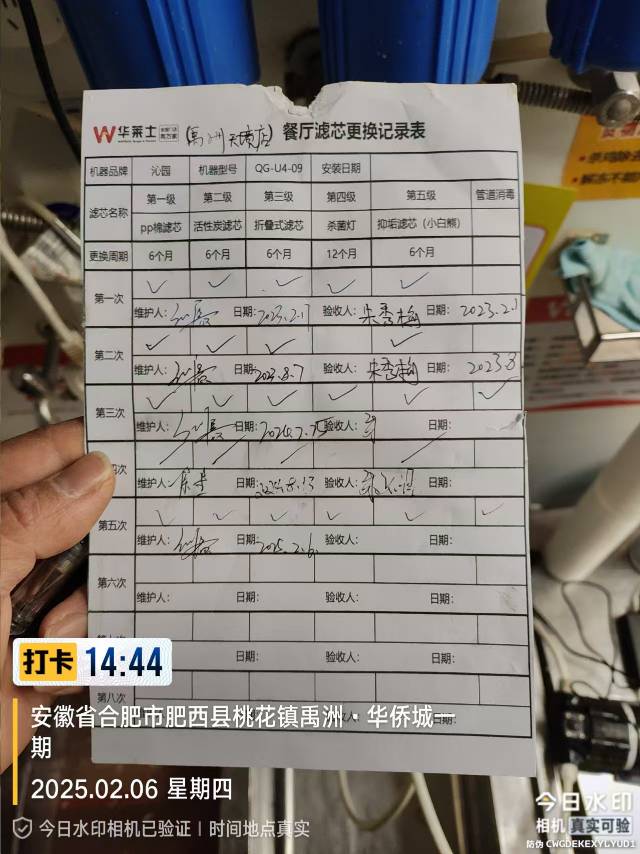 华莱士 (禹洲天境店) 餐厅滤芯更换记录表
机器品牌 沁园 机器型号 QG-U4-09 安装日期
滤芯名称 第一级 第二级 第三级 第四级 第五级 管道消毒
pp棉滤芯 活性炭滤芯 折叠式滤芯 杀菌灯 抑垢滤芯（小白熊）
更换周期 6个月 6个月 6个月 12个月 6个月
✓ ✓ ✓ ✓ ✓
第一次
维护人： 日期：2023.2.17 验收人：朱秀梅 2023.2.1
✓ ✓ ✓ ✓
第二次
维护人： 日期：2023.8.7 验收人：朱秀梅 2023.8
✓ ✓ ✓ ✓ ✓ ✓
第三次
维护人： 日期： 验收人： 日期：
次
维护人： 日期：2024.8.13 验收人： 日期：
✓ ✓ ✓ ✓ ✓ ✓
第五次
维护人： 日期：2025.2.6 验收人： 日期：
第六次
维护人： 日期： 验收人： 日期：
日期： 验收人： 日期：
第八次
打卡 14:44
安徽省合肥市肥西县桃花镇禹洲·华侨城一
期
2025.02.06 星期四
今日水印相机已验证 | 时间地点真实
今日水印
相机 真实可验
防伪 CWGDEKEXYLYUD1